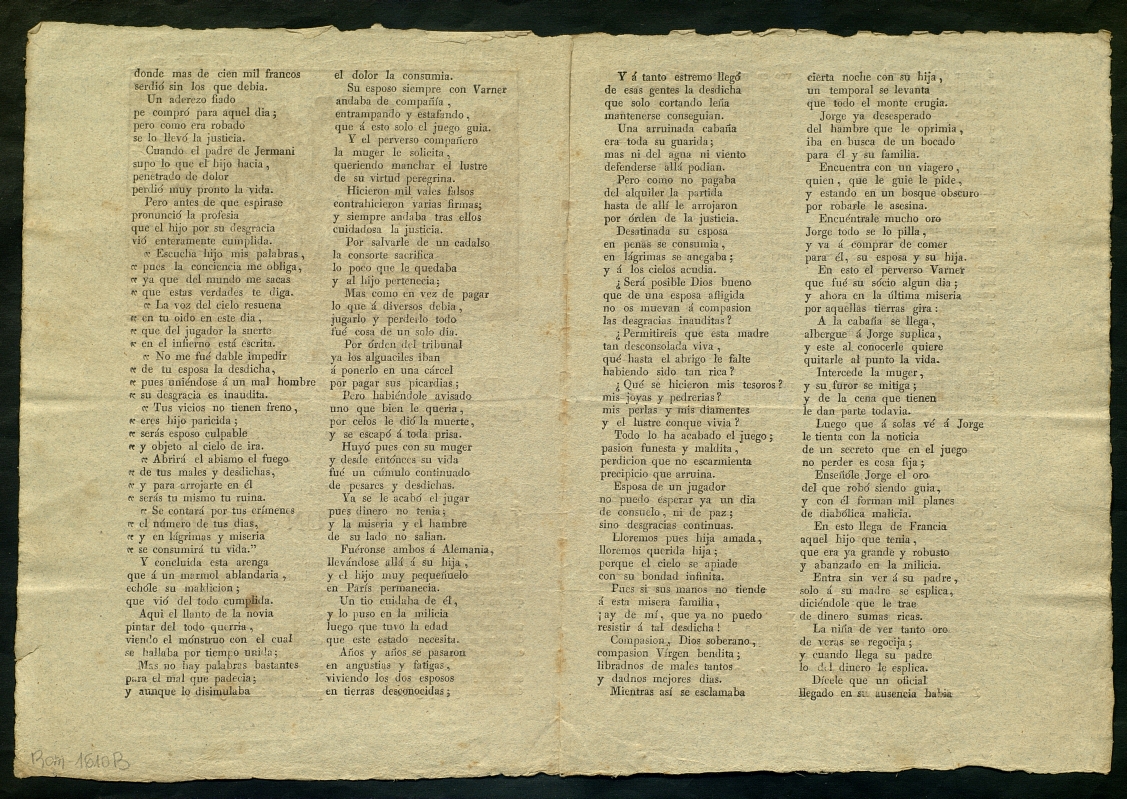 donde mas de cien mil francos
serdió sin los que debia.
Un aderezo fiado
pe compró para aquel dia;
pero como era robado
se lo llevó la justicia.
Cuando el padre de Jermani
supo lo que el hijo hacia,
penetrado de dolor
perdió muy pronto la vida.
Pero antes de que espirase
pronunció la profesia
que el hijo por su desgracia
vió enteramente cumplida.
« Escucha hijo mis palabras,
« pues la conciencia me obliga,
« ya que del mundo me sacas
« que estas verdades te diga.
« La voz del cielo resuena
« en tu oido en este dia,
« que del jugador la suerte
« en el infierno está escrita.
« No me fué dable impedir
« de tu esposa la desdicha,
« pues uniéndose á un mal hombre
« su desgracia es inaudita.
« Tus vicios no tienen freno,
« eres hijo paricida;
« serás esposo culpable
« y objeto al cielo de ira.
« Abrirá el abismo el fuego
« de tus males y desdichas,
« y para arrojarte en él
« serás tu mismo tu ruina.
« Se contará por tus crímenes
« el número de tus dias,
« y en lágrimas y miseria
« se consumirá tu vida."
Y concluida esta arenga
que á un marmol ablandaria,
echóle su maldicion;
que vió del todo cumplida.
Aqui el llanto de la novia
pintar del todo querria,
viendo el mónstruo con el cual
se hallaba por tiempo unida;
Mas no hay palabras bastantes
para el mal que padecia;
y aunque lo disimulaba
el dolor la consumia.
Su esposo siempre con Varner
andaba de compañía,
entrampando y estafando,
que á esto solo el juego guia.
Y el perverso compañero
la muger le solicita,
queriendo manchar el lustre
de su virtud peregrina.
Hicieron mil vales falsos
contrahicieron varias firmas;
y siempre andaba tras ellos
cuidadosa la justicia.
Por salvarle de un cadalso
la consorte sacrifica
lo poco que le quedaba
y al hijo pertenecia;
Mas como en vez de pagar
lo que á diversos debia,
jugarlo y perderlo todo
fué cosa de un solo dia.
Por órden del tribunal
ya los alguaciles iban
á ponerlo en una cárcel
por pagar sus picardias;
Pero habiéndole avisado
uno que bien le queria,
por celos le dió la muerte,
y se escapó á toda prisa.
Huyó pues con su muger
y desde entónces su vida
fué un cúmulo continuado
de pesares y desdichas.
Ya se le acabó el jugar
pues dinero no tenia;
y la miseria y el hambre
de su lado no salian.
Fuéronse ambos á Alemania,
llevándose allá á su hija,
y el hijo muy pequeñuelo
en París permanecia.
Un tio cuidaba de él,
y lo puso en la milicia
luego que tuvo la edad
que este estado necesita.
Años y años se pasaron
en angustias y fatigas,
viviendo los dos esposos
en tierras desconocidas;
Y á tanto estremo llegó
de esas gentes la desdicha
que solo cortando leña
mantenerse conseguian.
Una arruinada cabaña
era toda su guarida;
mas ni del agua ni viento
defenderse allá podian.
Pero como no pagaba
del alquiler la partida
hasta de allí le arrojaron
por órden de la justicia.
Desatinada su esposa
en penas se consumia,
en lágrimas se anegaba;
y á los cielos acudia.
¿Será posible Dios bueno
que de una esposa afligida
no os muevan á compasion
las desgracias inauditas?
¿Permitireis que esta madre
tan desconsolada viva,
qué hasta el abrigo le falte
habiendo sido tan rica?
¿Qué se hicieron mis tesoros?
mis joyas y pedrerias?
mis perlas y mis diamentes
y el lustre conque vivia?
Todo lo ha acabado el juego;
pasion funesta y maldita,
perdicion que no escarmienta
precipicio que arruina.
Esposa de un jugador
no puedo esperar ya un dia
de consuelo, ni de paz;
sino desgracias continuas.
Lloremos pues hija amada,
lloremos querida hija;
porque el cielo se apiade
con su bondad infinita.
Pues si sus manos no tiende
á esta misera familia,
¡ay de mí, que ya no puedo
resistir á tal desdicha!
Compasion, Dios soberano,
compasion Vírgen bendita;
libradnos de males tantos
y dadnos mejores dias.
Mientras así se esclamaba
cierta noche con su hija,
un temporal se levanta
que todo el monte crugia.
Jorge ya desesperado
del hambre que le oprimia,
iba en busca de un bocado
para él y su familia.
Encuentra con un viagero,
quien, que le guie le pide,
y estando en un bosque obscuro
por robarle le asesina.
Encuéntrale mucho oro
Jorge todo se lo pilla,
y va á comprar de comer
para él, su esposa y su hija.
En esto el perverso Varner
que fué su sócio algun dia;
y ahora en la última miseria
por aquellas tierras gira:
A la cabaña se llega,
albergue á Jorge suplica,
y este al conocerle quiere
quitarle al punto la vida.
Intercede la muger,
y su furor se mitiga;
y de la cena que tienen
le dan parte todavia.
Luego que á solas vé á Jorge
le tienta con la noticia
de un secreto que en el juego
no perder es cosa fija;
Enseñóle Jorge el oro
del que robó siendo guia,
y con él forman mil planes
de diabólica malicia.
En esto llega de Francia
aquel hijo que tenia,
que era ya grande y robusto
y abanzado en la milicia.
Entra sin ver á su padre,
solo á su madre se esplica,
diciéndole que le trae
de dinero sumas ricas.
La niña de ver tanto oro
de veras se regocija;
y cuando llega su padre
lo del dinero le esplica.
Dícele que un oficial
llegado en su ausencia habia
Rom-1610B